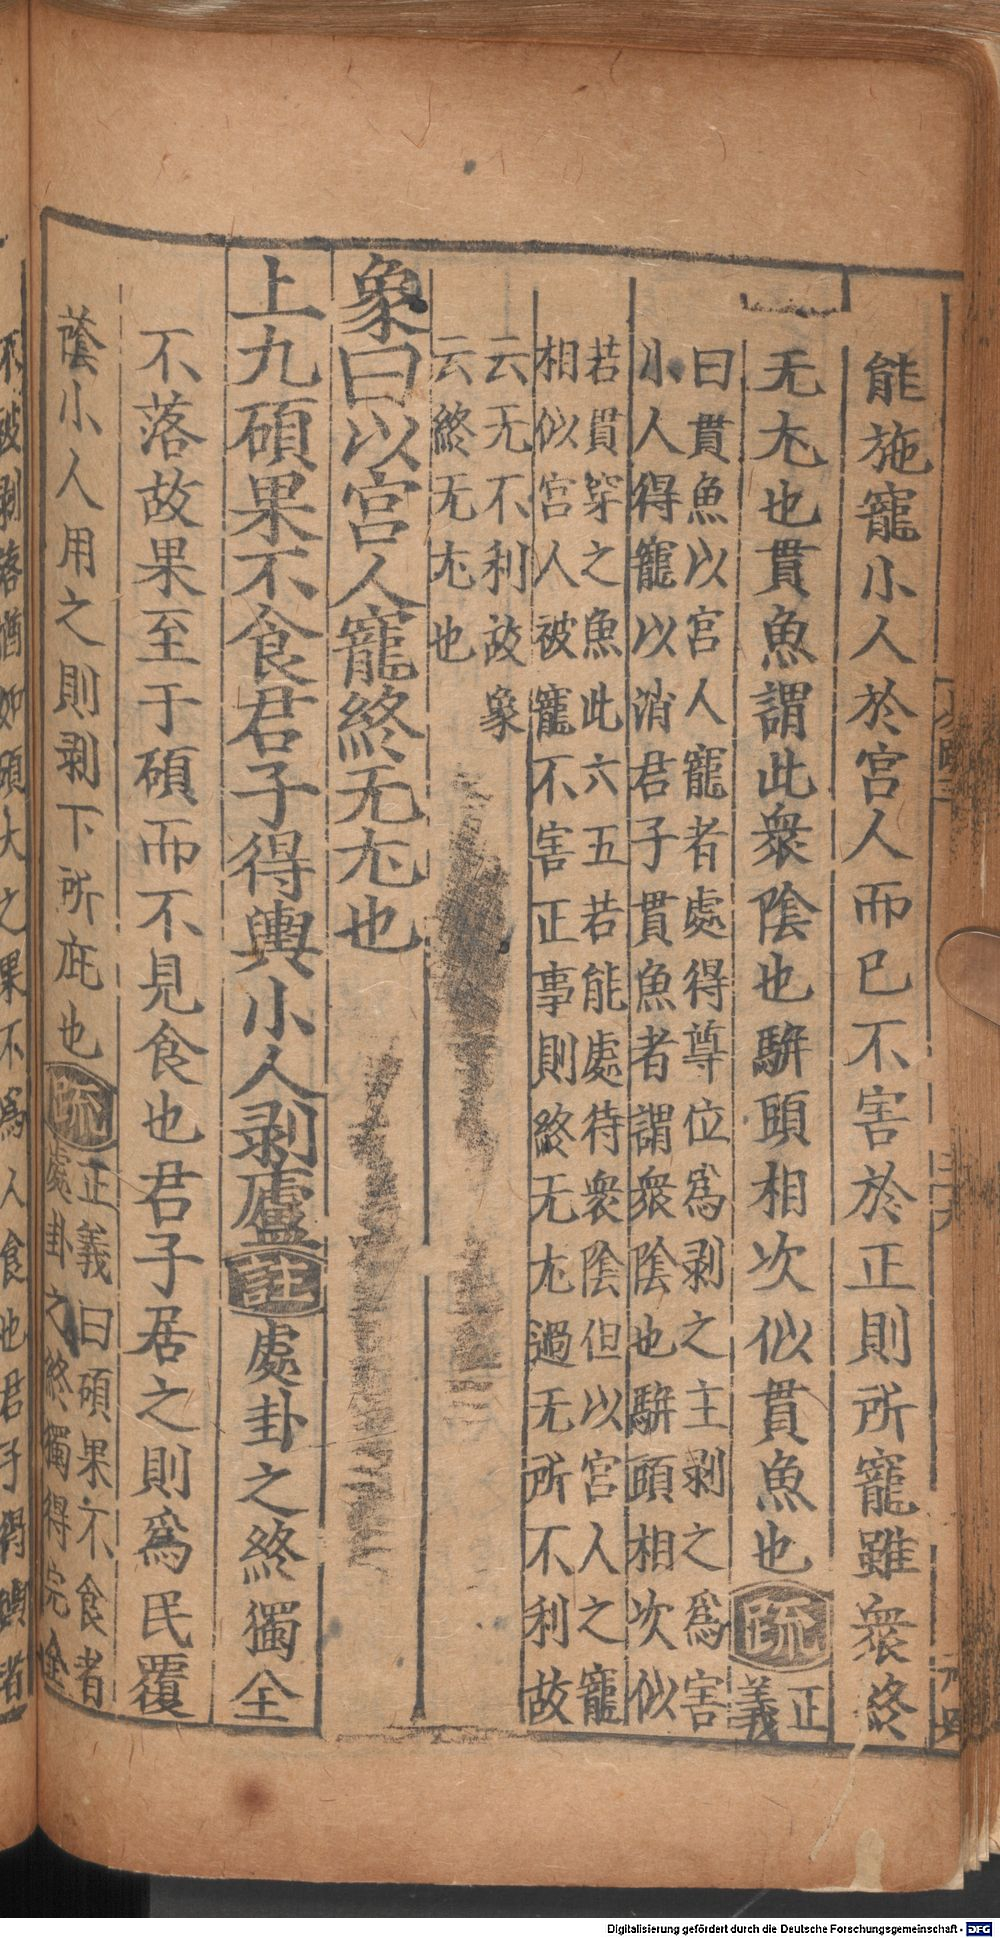 能施寵小人於宮人而已不害於正則所寵雖衆終
无尤也貫魚謂此衆陰也駢頭相次似貫魚也疏正
義
曰貫魚以宮人寵者處得尊位爲剥之主剥之爲害
小人得寵以消君子貫魚者謂衆陰也駢頭相次似
若貫穿之魚此六五若能處待衆陰但以宮人之寵
相似宮人被寵不害正事則終无尤過无所不利故
云无不利故象
云終无尤也
象曰以宮人寵終无尤也
上九碩果不食君子得輿小人剥廬註處卦之終獨全
不落故果至于碩而不見食也君子居之則爲民覆
蔭小人用之則剥下所庇也疏正義曰碩果不食者
處卦之終獨得完全
不被剥落猶如碩大之果不爲人食也君子得輿者
Digitalisierung gefördert durch die Deutsche Forschungsgemeinschaft - DFG